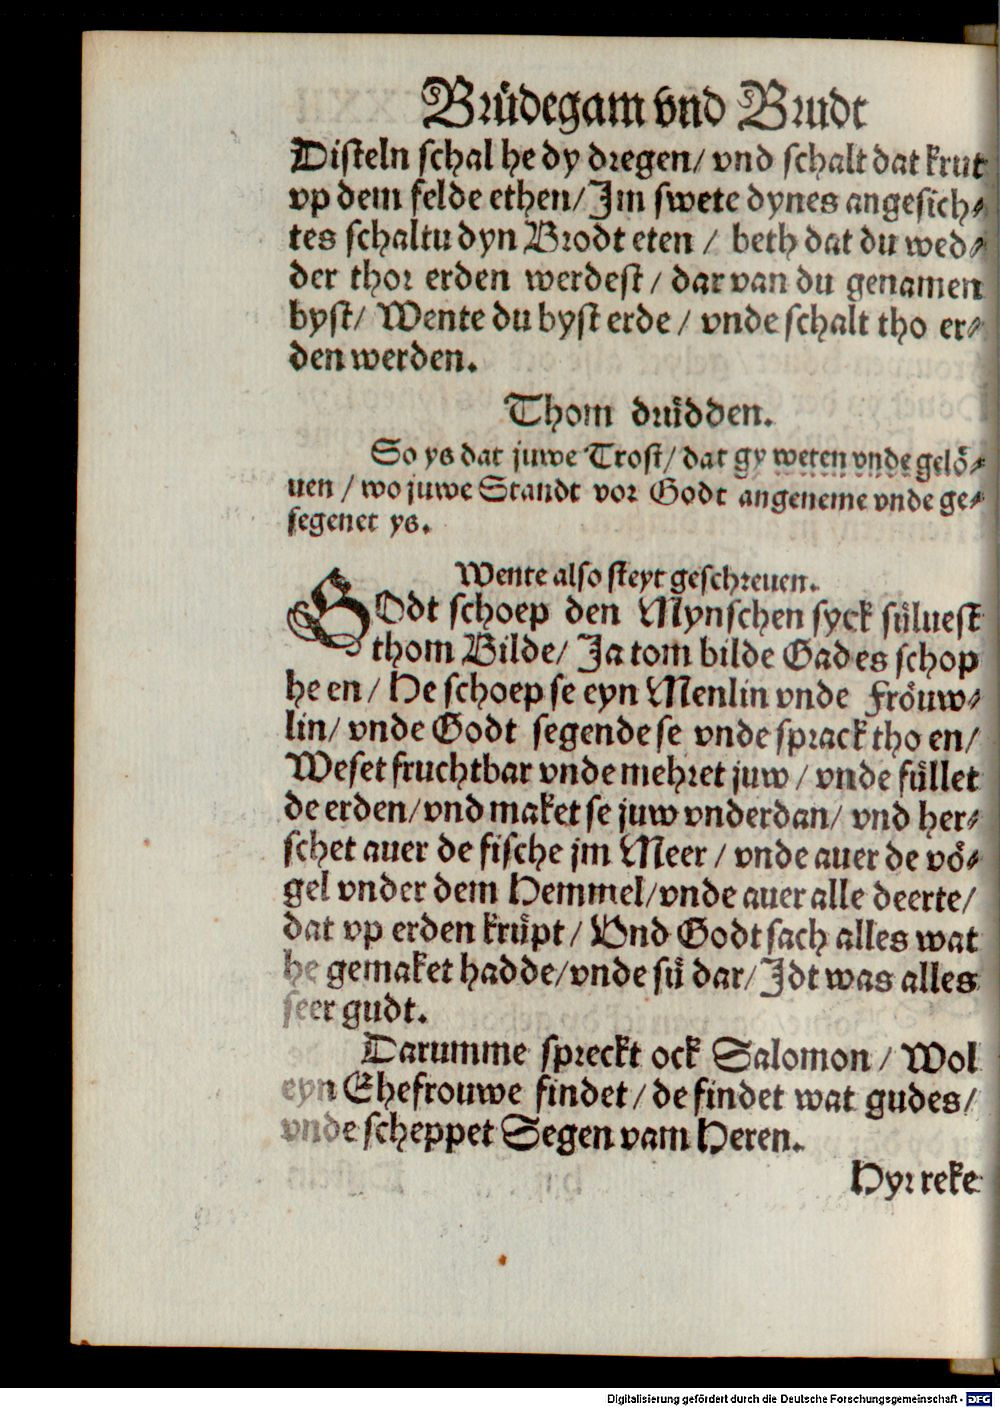 Brüdegam vnd Brudt
Disteln schal he dy dregen/ vnd schalt dat krut
vp dem felde ethen/ Jm swete dynes angesich⸗
tes schaltu dyn Brodt eten / beth dat du wed⸗
der thor erden werdest / dar van du genamen
byst/ Wente du byst erde / vnde schalt tho er⸗
den werden.
Thom drüdden.
So ys dat juwe Trost/ dat gy weten vnde gelö⸗
uen / wo juwe Standt vor Godt angeneme vnde ge⸗
segenet ys.
Wente also steyt geschreuen.
GOdt schoep den Mynschen syck süluest
thom Bilde/ Ja tom bilde Gades schop
he en / He schoep se eyn Menlin vnde Fröuw⸗
lin/ vnde Godt segende se vnde sprack tho en/
Weset fruchtbar vnde mehret juw / vnde füllet
de erden/ vnd maket se juw vnderdan/ vnd her⸗
schet auer de fische jm Meer / vnde auer de vö⸗
gel vnder dem Hemmel/ vnde auer alle deerte/
dat vp erden krüpt / Vnd Godt sach alles wat
he gemaket hadde/ vnde sü dar/ Jdt was alles
seer gudt.
Darumme spreckt ock Salomon / Wol
eyn Ehefrouwe findet / de findet wat gudes/
vnde scheppet Segen vam Heren.
Hyr reke
Digitalisierung gefördert durch die Deutsche Forschungsgemeinschaft - DFG